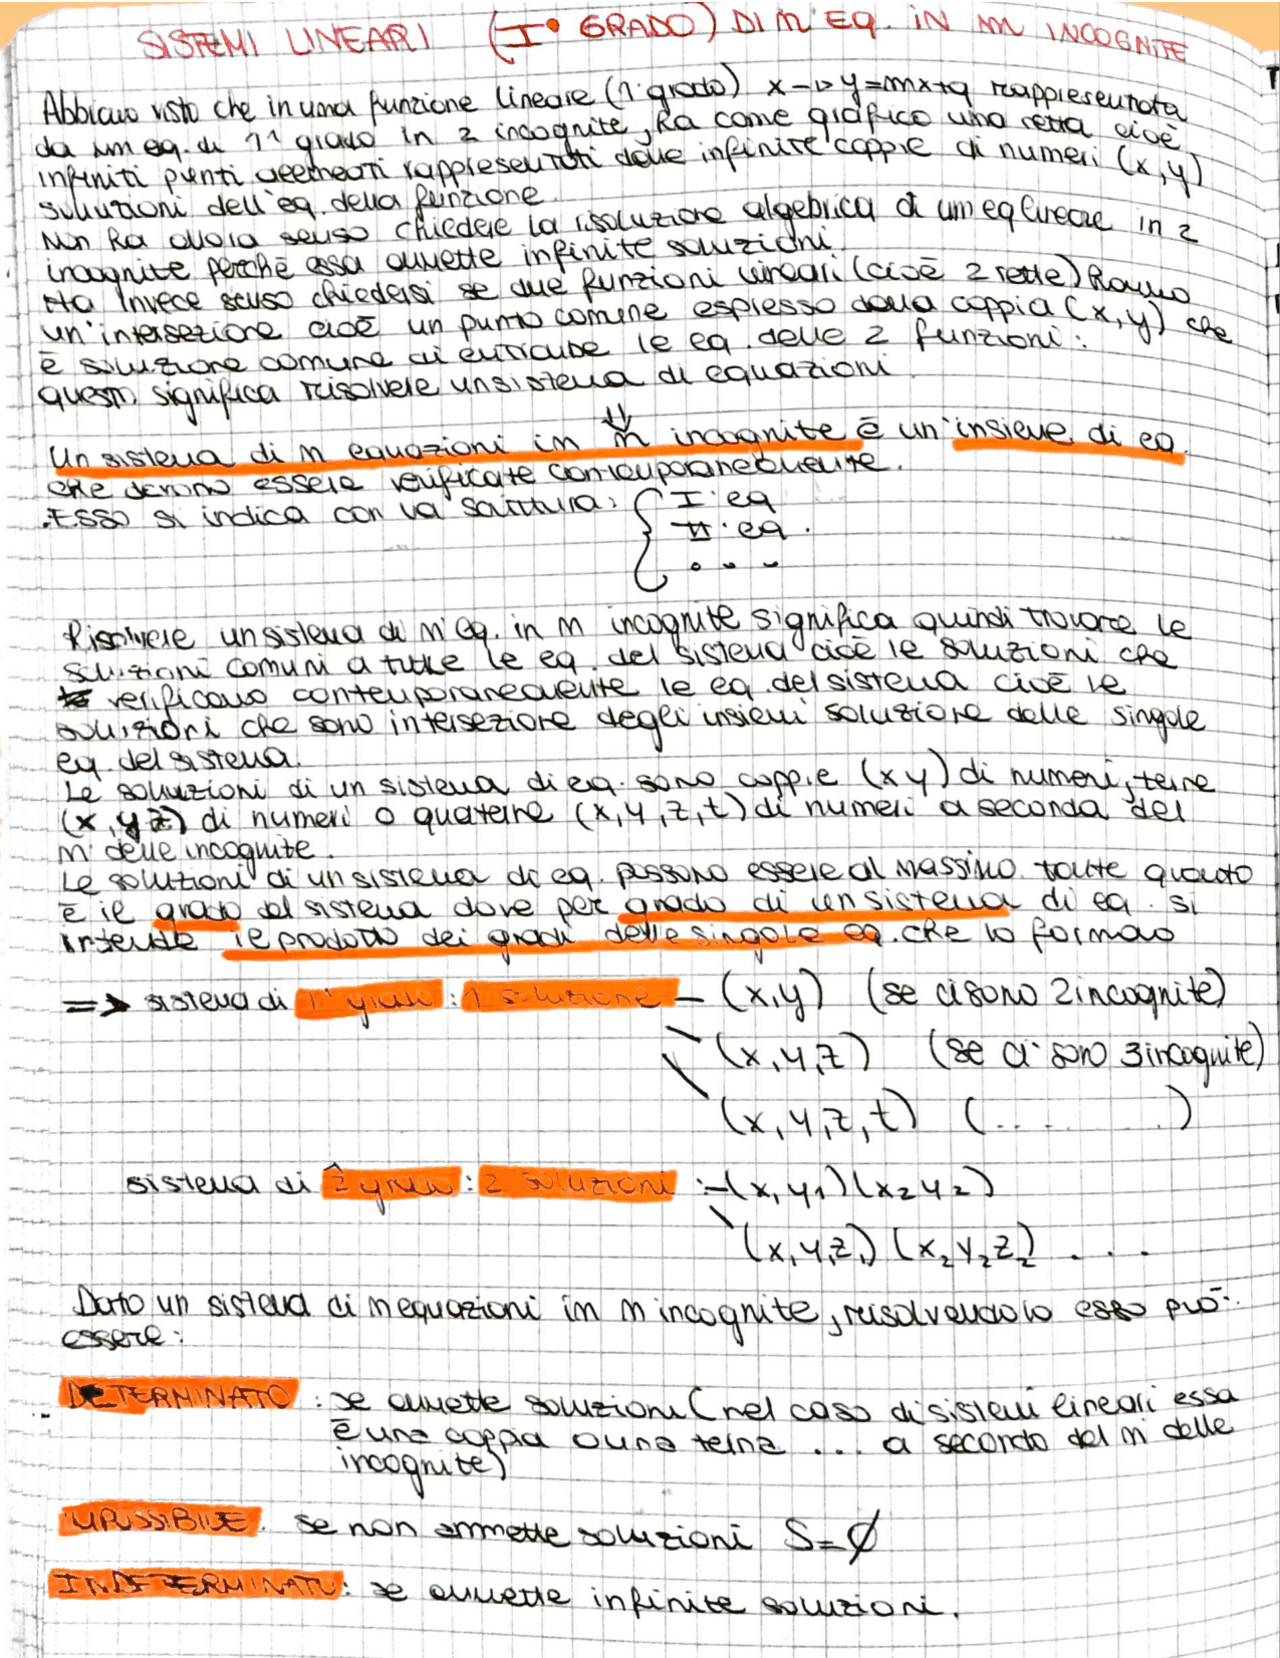 SISTEMI LINEARI (I° GRADO) DI n EQ. IN m INCOGNITE
Abbiamo visto che in una funzione lineare (1° grado) x → y=mx+q rappresentata
da un eq. di 1° grado in 2 incognite, ha come grafico una retta cioè
infiniti punti rappresentati dalle infinite coppie di numeri (x,y)
soluzioni dell'eq. della funzione.
Non ha allora senso chiedere la risoluzione algebrica di un eq lineare in 2
incognite perchè essa ammette infinite soluzioni.
Ha invece senso chiedersi se due funzioni lineari (cioè 2 rette) hanno
un'intersezione cioè un punto comune espresso dalla coppia (x,y) che
è soluzione comune di entrambe le eq. delle 2 funzioni:
questo significa risolvere un sistema di equazioni.
⇓
Un sistema di n equazioni in m incognite è un'insieme di eq.
che devono essere verificate contemporaneamente.
.Esso si indica con la scrittura: { I° eq
II° eq.
...
Risolvere un sistema di n eq. in m incognite significa quindi trovare le
soluzioni comuni a tutte le eq. del sistema cioè le soluzioni che
verificano contemporaneamente le eq. del sistema cioè le
soluzioni che sono intersezione degli insiemi soluzione delle singole
eq. del sistema.
Le soluzioni di un sistema di eq. sono coppie (x y) di numeri, terne
(x,y z) di numeri o quaterne (x,y,z,t) di numeri a seconda del
n° delle incognite.
Le soluzioni di un sistema di eq. possono essere al massimo tante quanto
è il grado del sistema dove per grado di un sistema di eq. si
intende il prodotto dei gradi delle singole eq. che lo formano
=> sistema di 1° grado: 1 soluzione – (x,y) (se ci sono 2 incognite)
(x,y,z) (se ci sono 3 incognite)
(x,y,z,t) (.... .)
sistema di 2° grado: 2 soluzioni :-(x,y1)(x2y2)
(x,y,z,) (x2y2z2) ...
Dato un sistema di n equazioni in m incognite, risolvendolo esso può
essere:
DETERMINATO: se ammette soluzioni (nel caso di sistemi lineari essa
è una coppia o una terna ... a secondo del n° delle
incognite)
IMPOSSIBILE. se non ammette soluzioni S=∅
INDETERMINATO: se ammette infinite soluzioni.